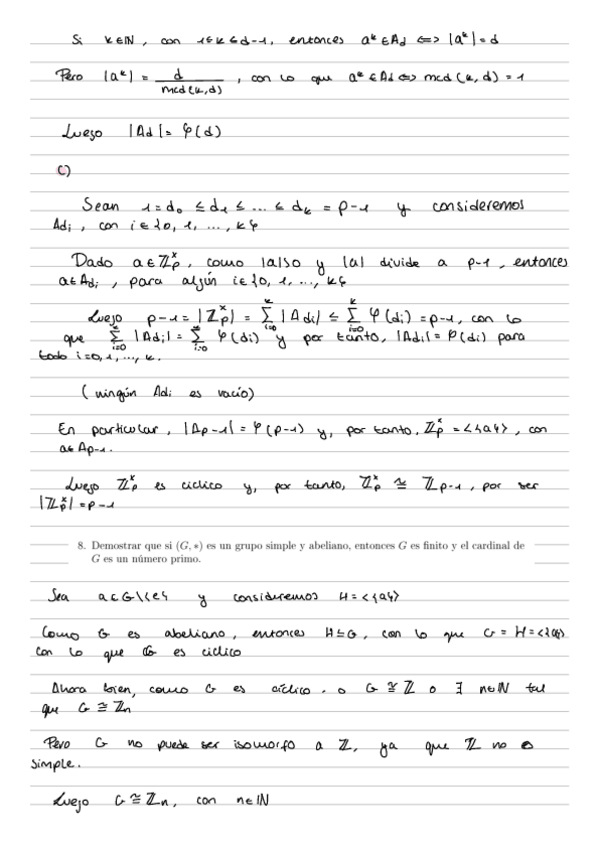 Si k∈ℕ, con 1≤k≤d-1, entonces aᵏ∈Ad ⟺ |aᵏ|=d
Pero |aᵏ| = d/mcd(k,d), con lo que aᵏ∈Ad ⟺ mcd(k,d)=1
Luego |Ad|= φ(d)
C)
Sean 1=d₀ ≤ d₁ ≤ ... ≤ dₖ = p-1 y consideremos
Adᵢ, con i∈{0, 1, ..., k}
Dado a∈ℤₚˣ, como |a|>0 y |a| divide a p-1, entonces
a∈Adᵢ, para algún i∈{0, 1, ..., k}
Luego p-1 = |ℤₚˣ| = Σᵢ₌₀ᵏ |Adᵢ| ≤ Σᵢ₌₀ᵏ φ(dᵢ) = p-1, con lo
que Σᵢ₌₀ᵏ |Adᵢ| = Σᵢ₌₀ᵏ φ(dᵢ) y por tanto, |Adᵢ| = φ(dᵢ) para
todo i=0, 1, ..., k.
(ningún Adᵢ es vacío)
En particular, |Ap-1| = φ(p-1) y, por tanto, ℤₚˣ = <{a}>, con
a∈Ap-1.
Luego ℤₚˣ es cíclico y, por tanto, ℤₚˣ ≅ ℤp-1, por ser
|ℤₚˣ| = p-1
8. Demostrar que si (G, *) es un grupo simple y abeliano, entonces G es finito y el cardinal de
G es un número primo.
Sea a∈G\{e} y consideremos H = <{a}>
Como G es abeliano, entonces H⊴G, con lo que G = H = <{a}>
con lo que G es cíclico
Ahora bien, como G es cíclico, o G ≅ ℤ o ∃ n∈ℕ tal
que G ≅ ℤn
Pero G no puede ser isomorfo a ℤ, ya que ℤ no
simple.
Luego G ≅ ℤn, con n∈ℕ